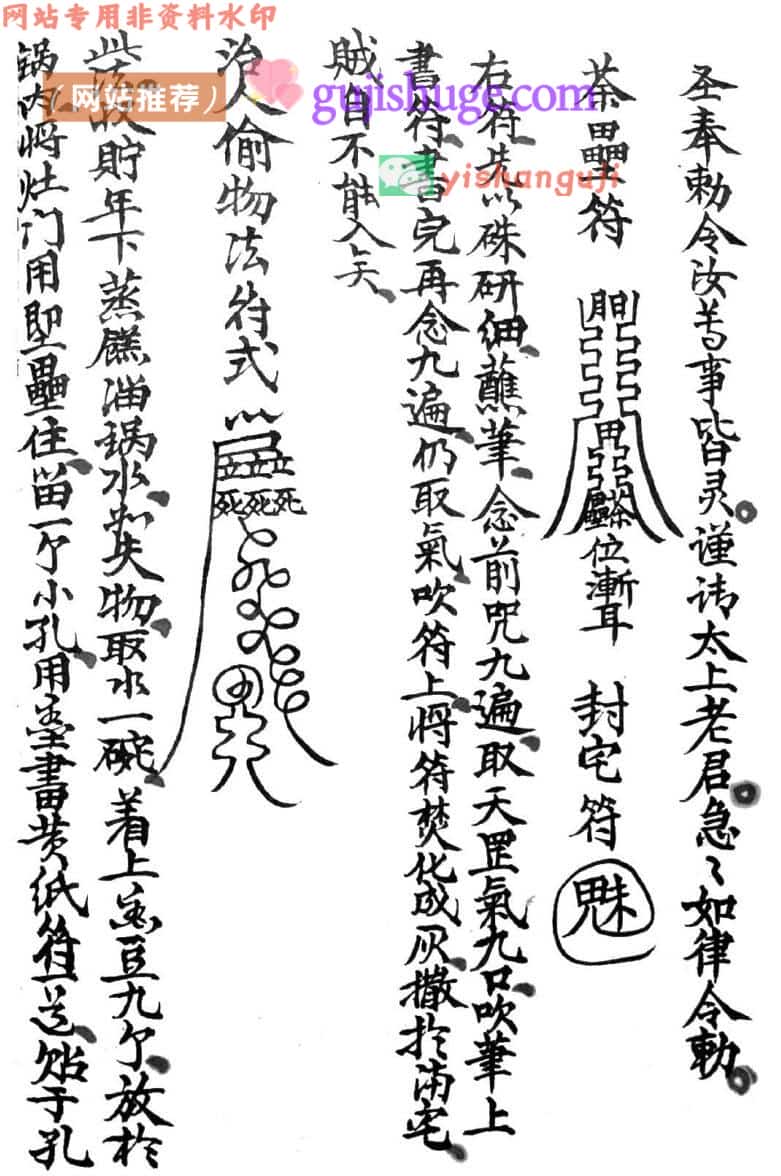 网站专用非资料水印
（网站推荐）
gujishuge.com
yishanguji
圣奉勅令汝等事皆灵谨请太上老君急々如律令勅
荼壘符 位漸耳 封宅符 魅
右符先以硃研细蘸筆念前咒九遍取天罡氣九口吹筆上
書符書完再念九遍仍取氣吹符上將符焚化成灰撒扵满宅
賊自不能入矣
治人偷物法符式
此 貯年下蒸饃溜鍋水如失物取水一碗着上黑豆九个放於
锅内將灶门用堲壘住留一个小孔用墨書黄纸符一道贴于孔